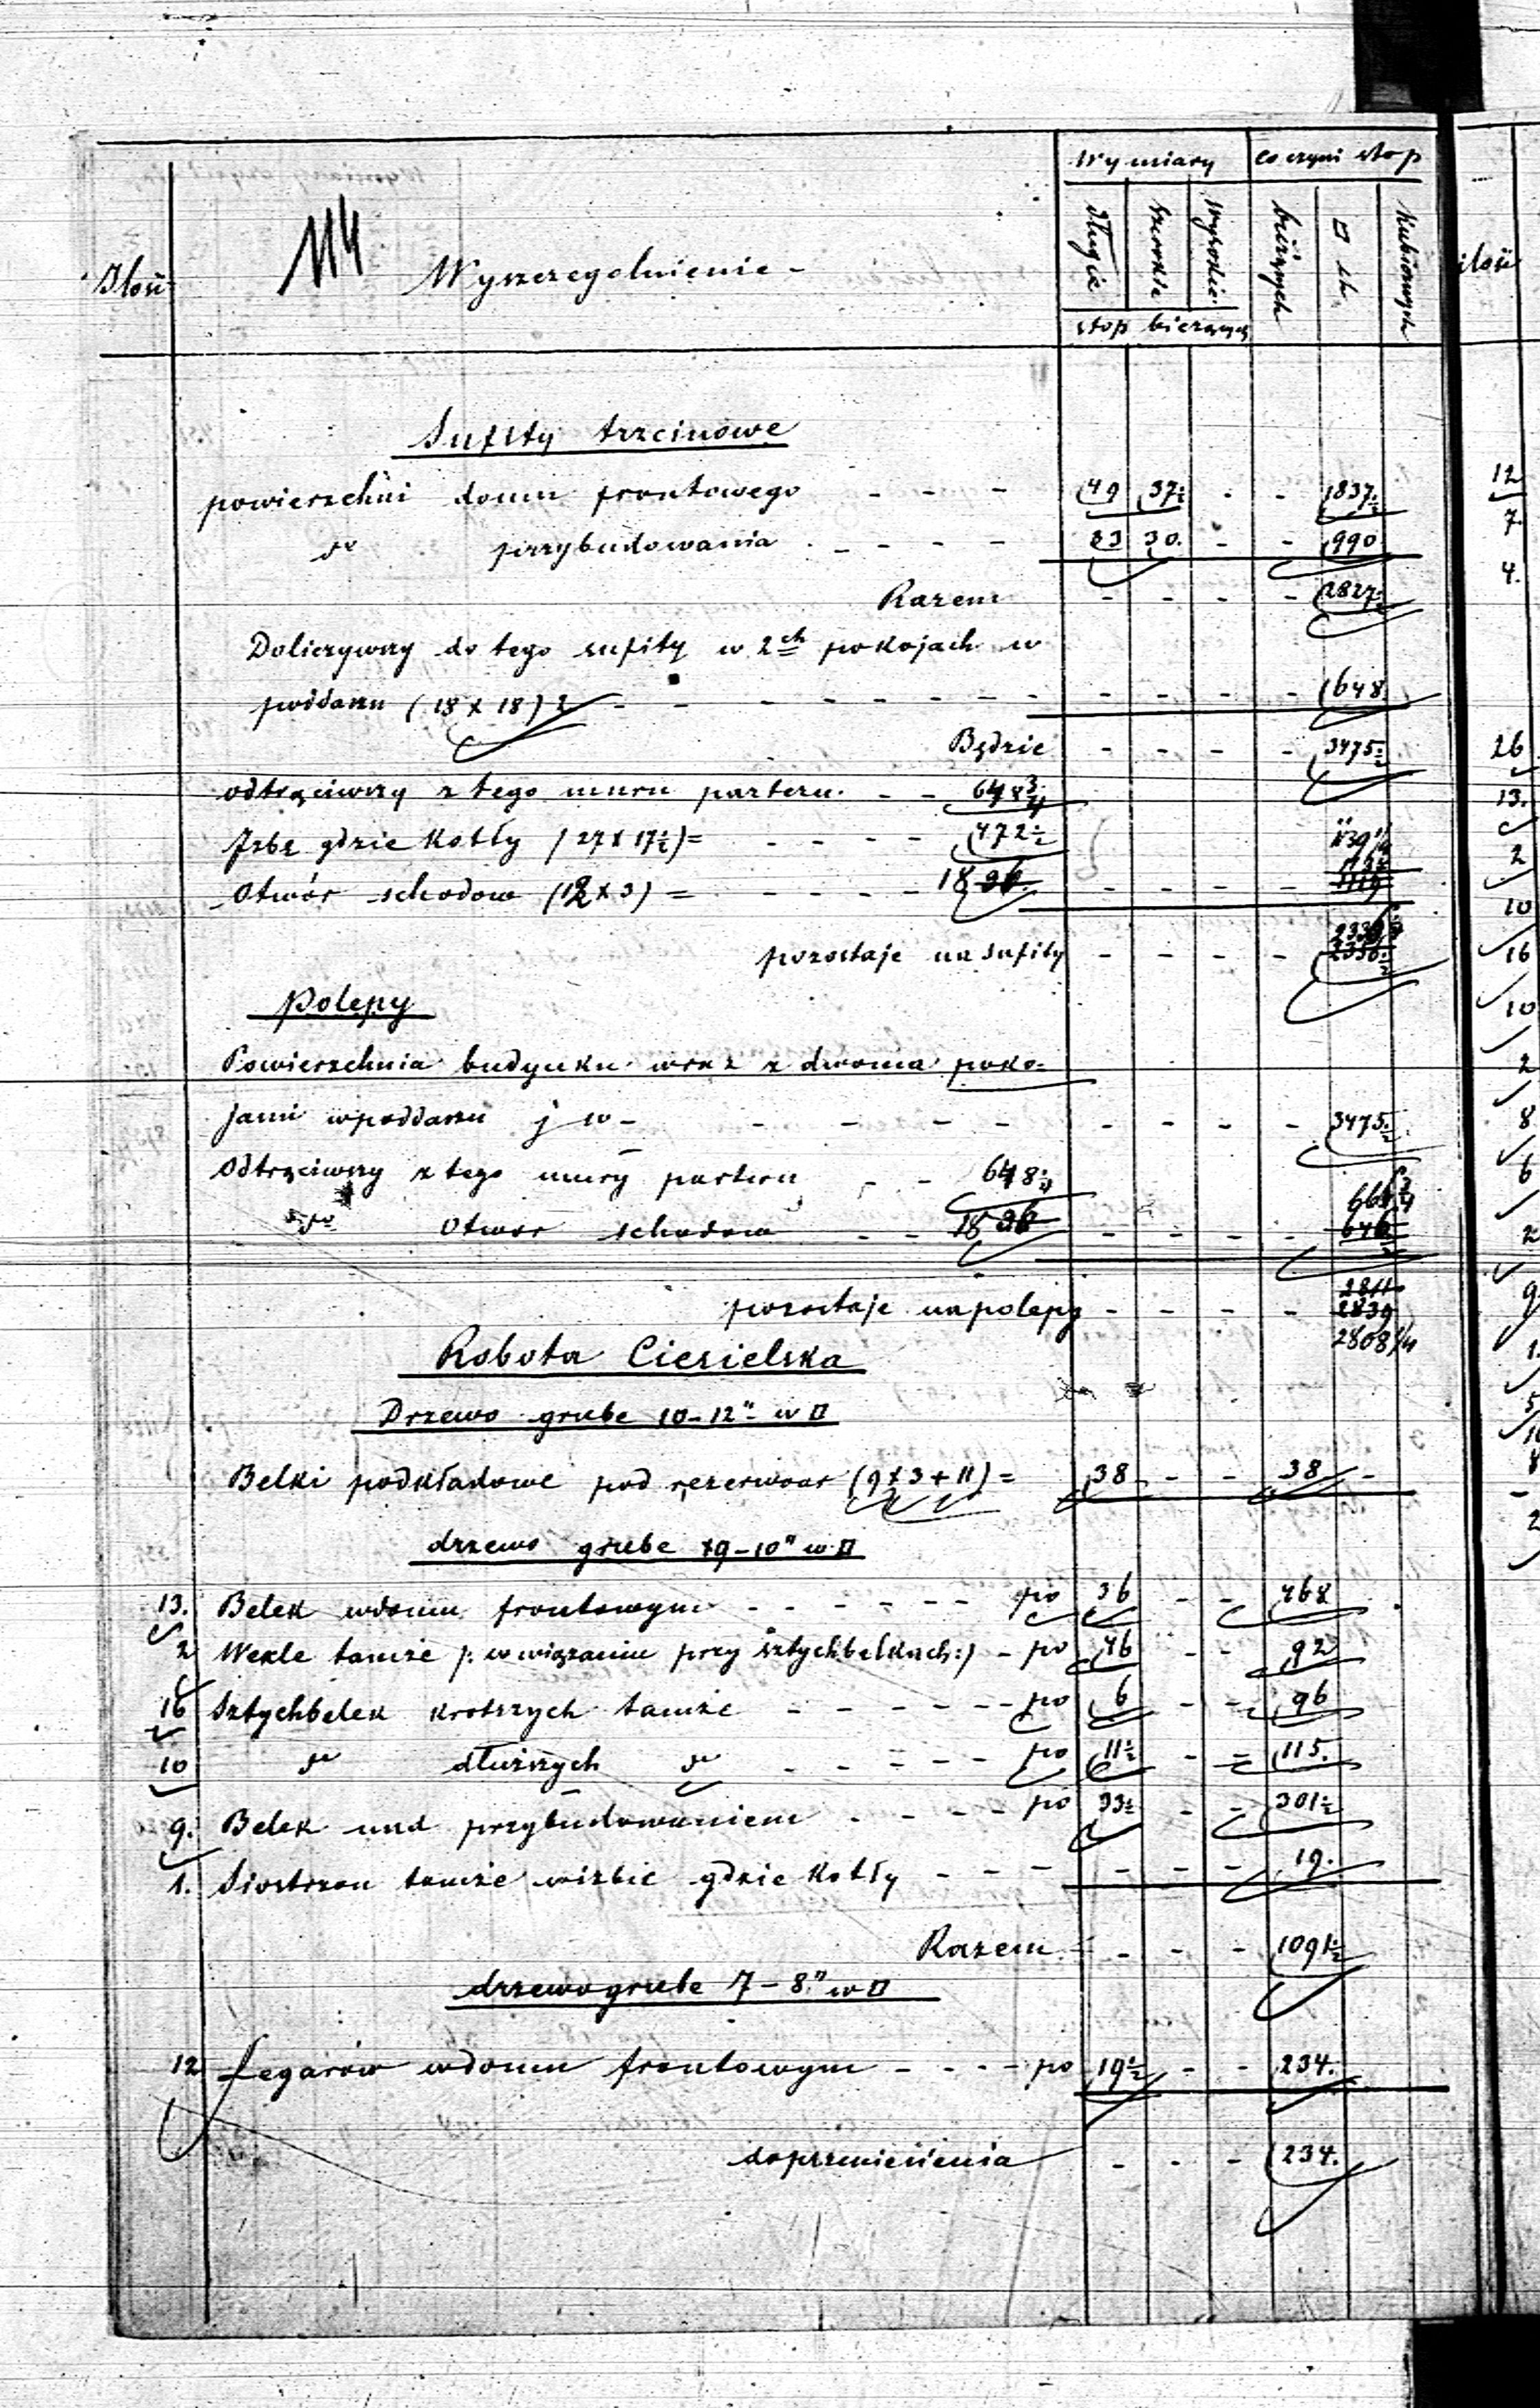 Wymiary | co czyni stop
Ilość | 114 Wyszczegolnienie - | długie | szerokie | wysokie | bieżących | □ ch | Kubicznych | ilość
stop bieżących
Sufity trzcinowe
powierzchni domu frontowego - - - 49 37½ - - 1837½
" przybudowania - - - - 33 30. - - 990
Razem - - - - 2827½
Doliczywszy do tego sufity w 2ch pokojach w
poddaszu (18 x 18) 2 - - - - - - - - - - 648
Będzie - - - - 3475½
odtrąciwszy z tego muru parteru - - 648¾
Izbę gdzie Kotły (27 x 17½) = - - - - 472½ 1139¼
Otwór schodow (12 x 3) = - - - - 18 36 - - - - 1119
pozostaje na sufity - - - - 2336¼
Polepy
Powierzchnia budynku wraz z dwoma poko-
jami w poddaszu j w - - - - - - - - - 3475½
Odtrąciwszy z tego mury parteru - - 648¾ 666¾
" Otwor schodow - - 18 36 - - - -
pozostaje na polepy - - - - 2811 2839
2808¾
Robota Ciesielska
Drzewo grube 10-12" w □
Belki podkładowe pod rezerwoar (9 x 3 + 11) = 38 - - 38 -
drzewo grube 9-10" w □
13. Belek w domu frontowym - - - - - - po 36 - - 468
2 Wexle tamże /: w wiązaniu przy sztychbelkach :/ - po 46 - - 92
16 Sztychbelek krotszych tamże - - - - - po 6 - - 96
10 " dłuższych " - - - - po 11½ - - 115.
9. Belek nad przybudowaniem - - - - po 33½ - - 301½
1. Siostrzan tamże w izbie gdzie Kotły - - - - - - 19.
Razem - - - 1091½
drzewo grube 7 - 8" w □
12 Legarów w domu frontowym - - - - po 19½ - - 234.
do przeniesienia - - - 234.
12
7.
4.
26
13.
2
10
16
10
2
8
6
2
9